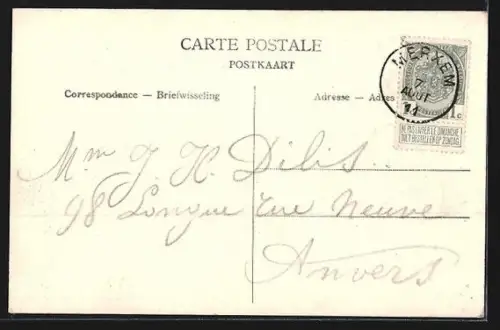 CARTE POSTALE
POSTKAART
Correspondance — Briefwisseling
Adresse — Adres
MERXEM
7
AOUT
11
1c
NE PAS LIVRER LE DIMANCHE
NIET BESTELLEN OP ZONDAG
Mme J. H. Dilis
98 Longue rue Neuve
Anvers